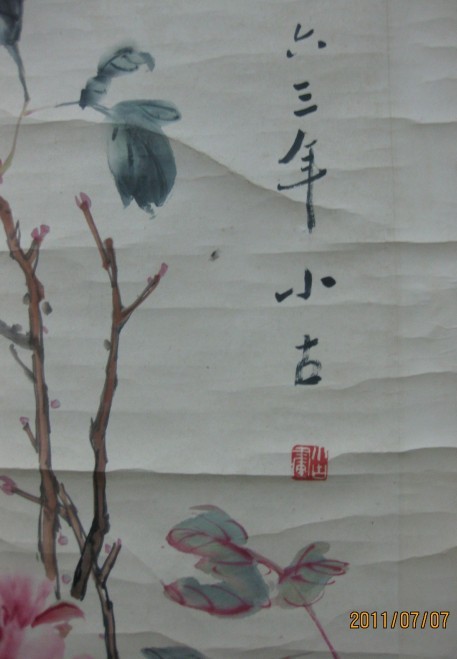 六三年小古
2011/07/07